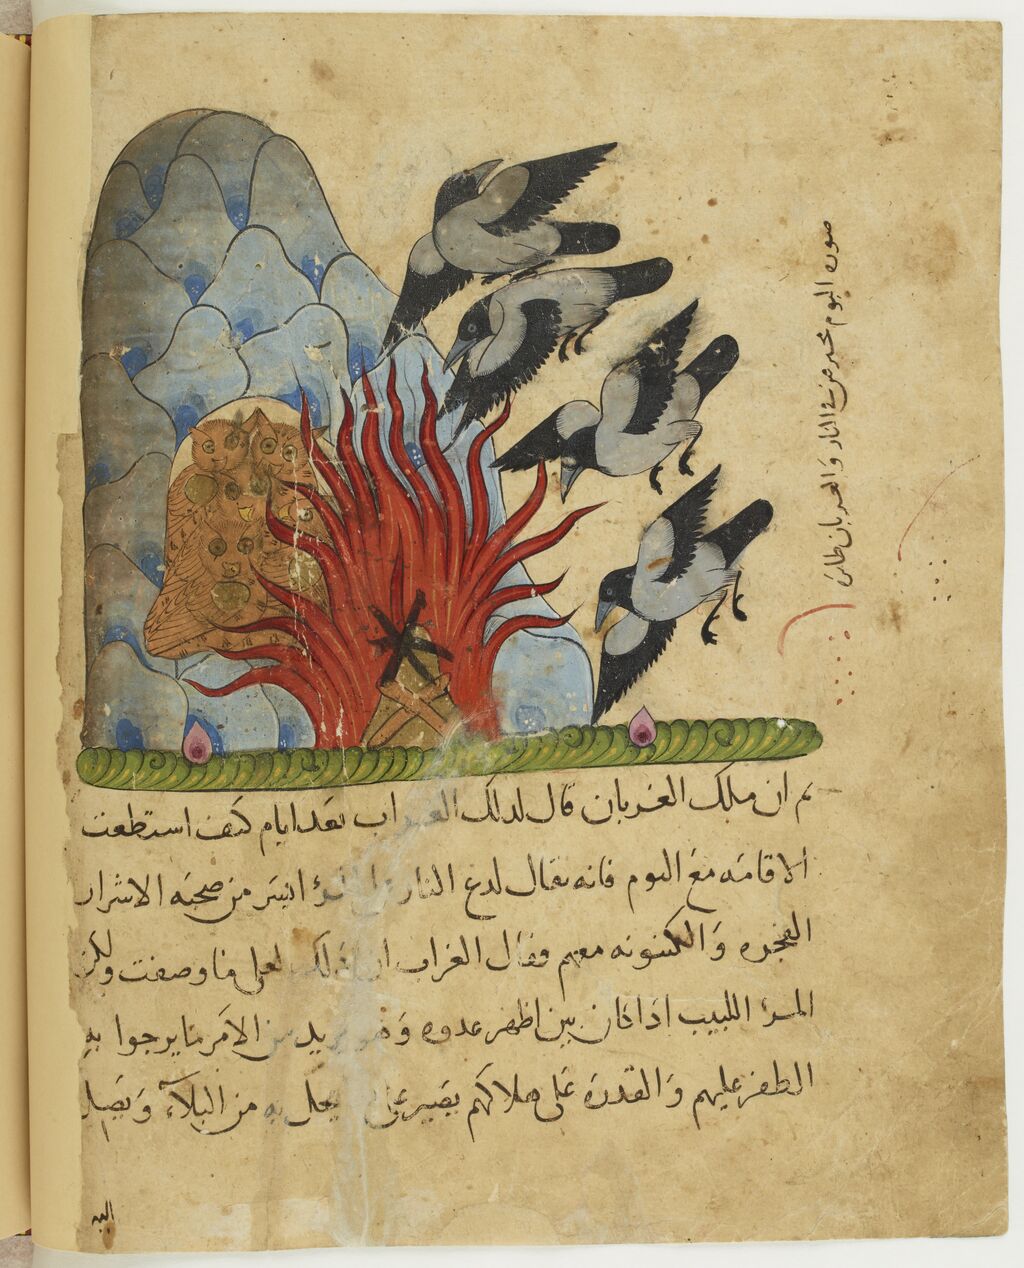 صورة البوم محترقة النار والغربان طائرة
ثم ان ملك الغربان قال لذلك الغراب بعد ايام كيف استطعت
الاقامه مع البوم فانه يقال لدغ النار للمرؤ ايسر من صحبه الاشرار
الفجره والكينونه معهم فقال الغراب ان ذلك لعلى ما وصفت ولكن
المرؤ اللبيب اذا كان بين اظهر عدوه وهو يريد من الامر ما يرجوا به
الظفر عليهم والقدره على هلاكهم يصبر على يحل به من البلآء ويصل
اليه